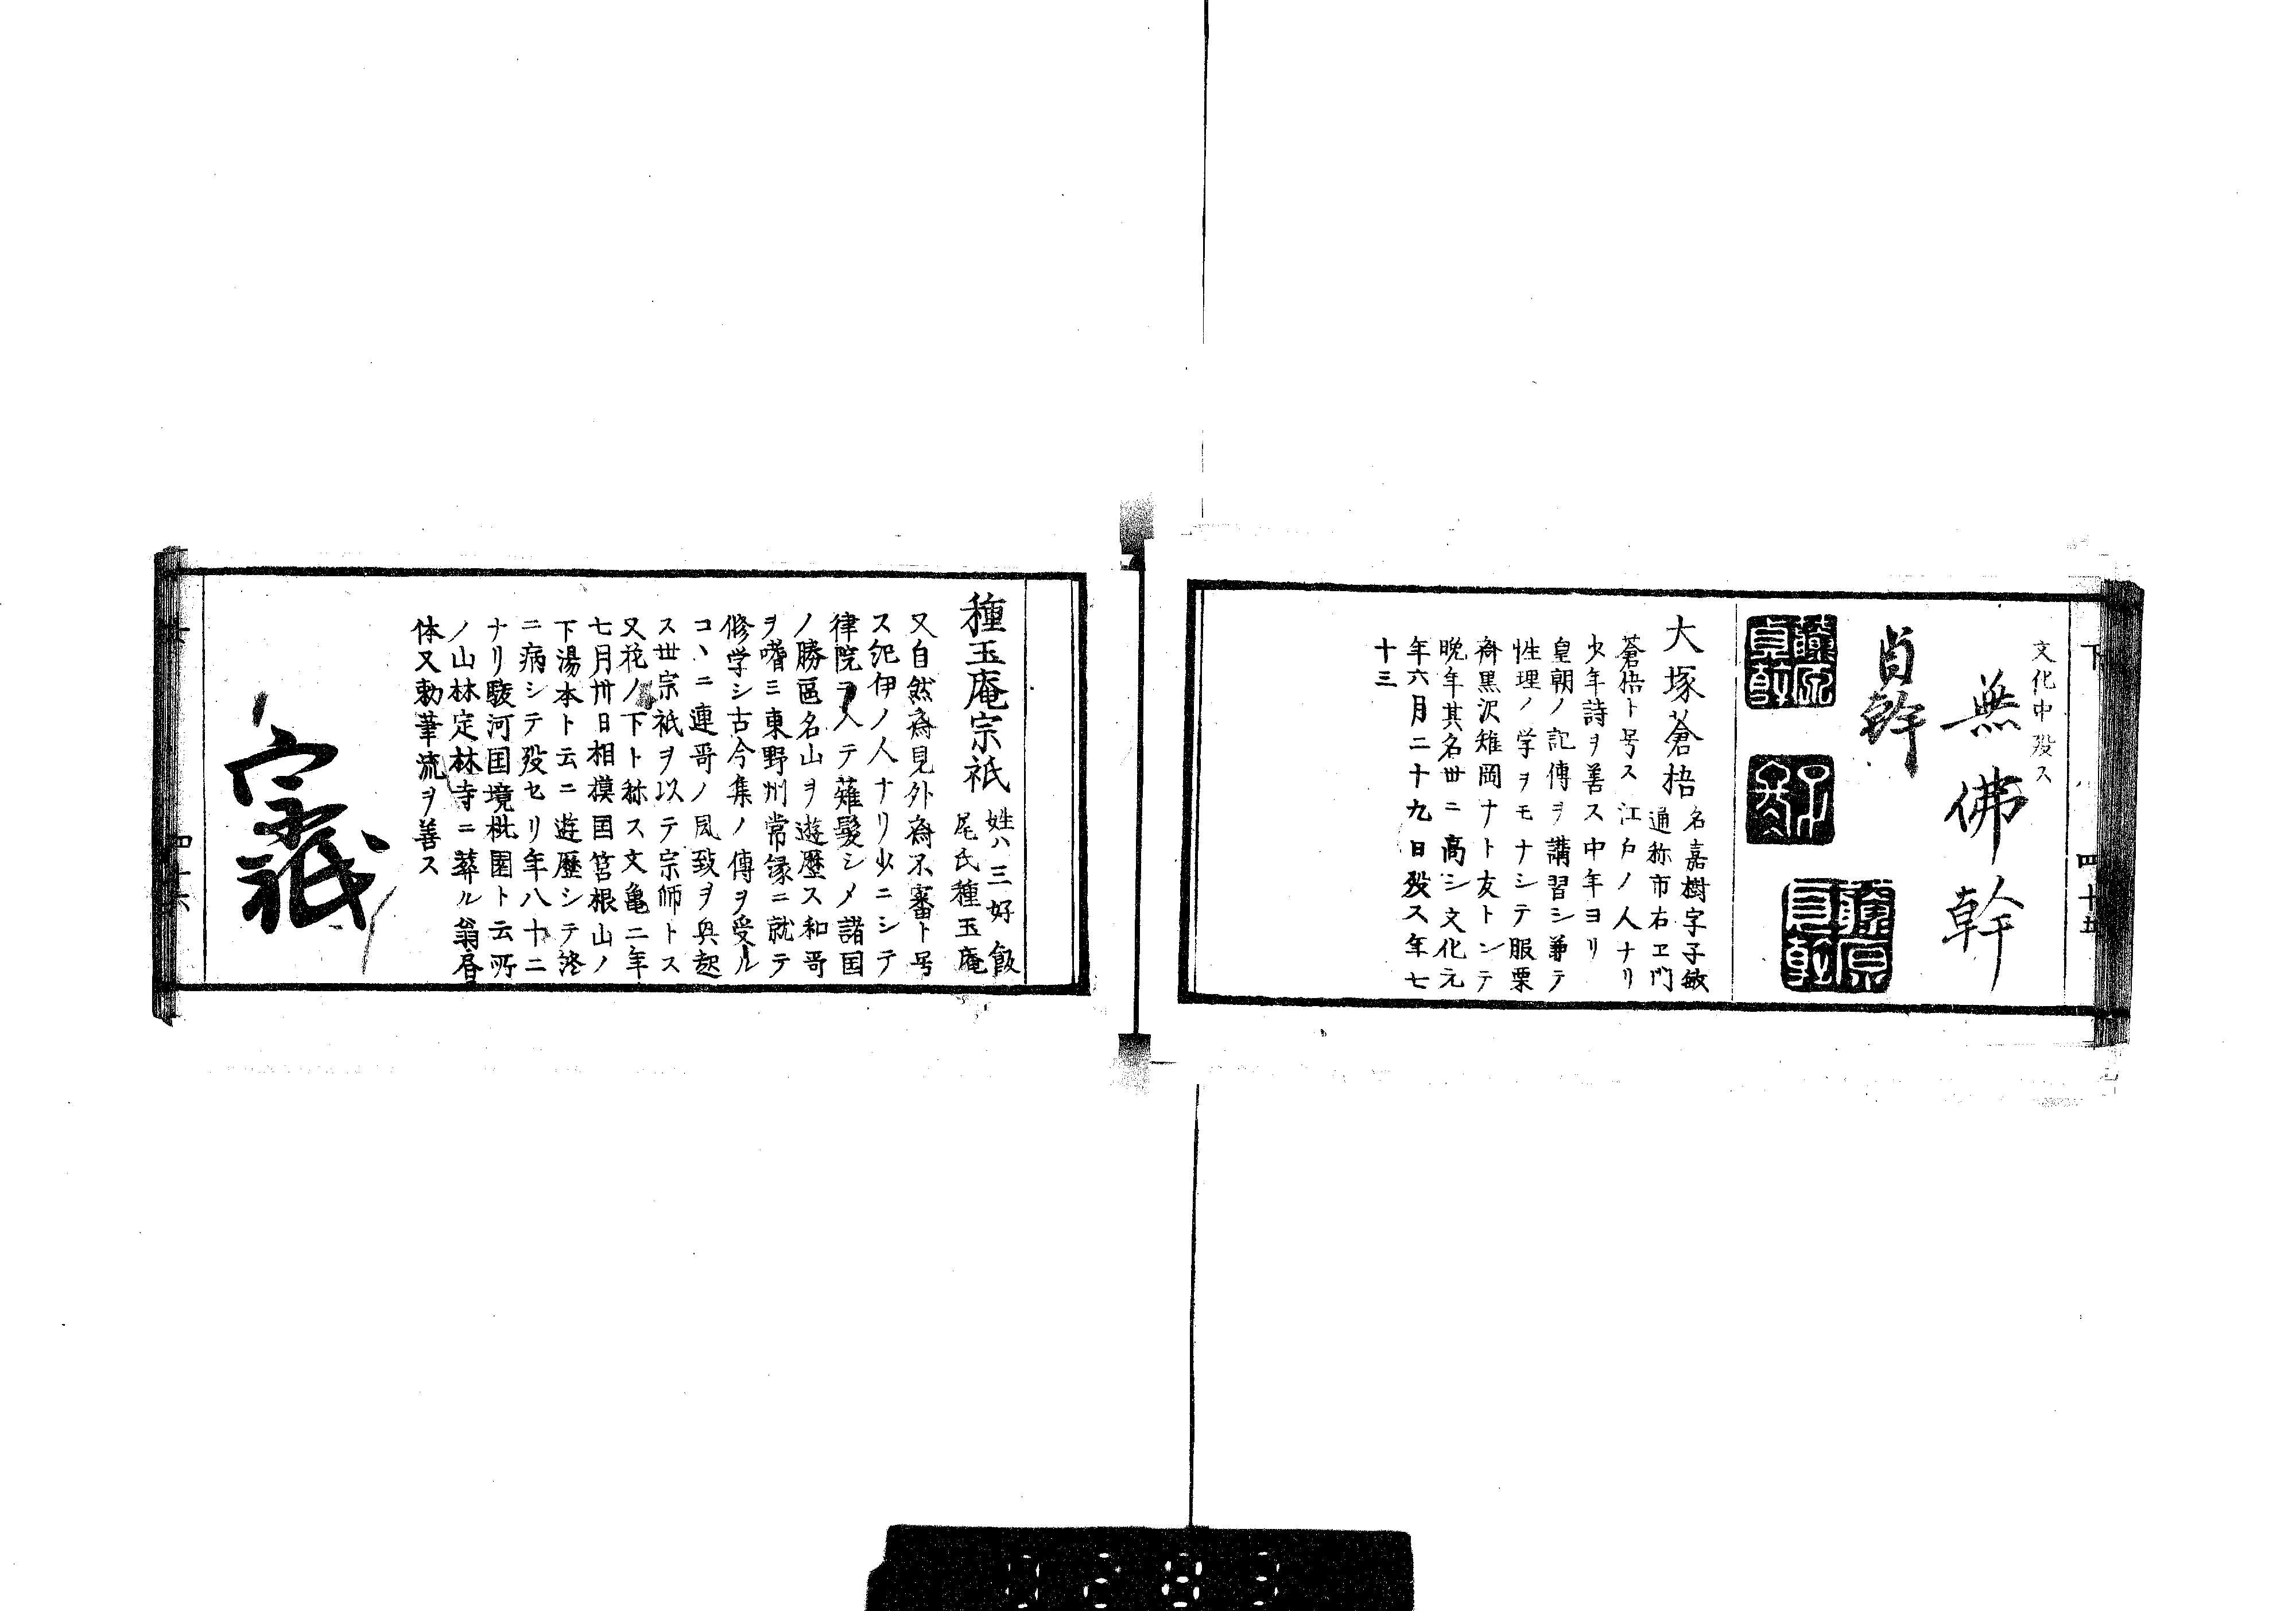 下
四十五
文化中歿ス
無佛幹
貞幹
大塚蒼梧
名嘉樹字子敏
通称市右エ門
蒼梧ト号ス江戸ノ人ナリ
少年詩ヲ善ス中年ヨリ
皇朝ノ記傳ヲ講習シ兼テ
性理ノ学ヲモナシテ服栗
斎黒沢雉岡ナト友トシテ
晩年其名世ニ高シ文化元
年六月二十九日歿ス年七
十三
種玉庵宗祇
姓ハ三好飯
尾氏種玉庵
又自然斎見外斎不審ト号
ス紀伊ノ人ナリ少ニシテ
律院ヲ入テ薙髪シメ諸国
ノ勝區名山ヲ遊歴ス和哥
ヲ嗜ミ東野州常縁ニ就テ
修学シ古今集ノ傳ヲ受ル
コヽニ連哥ノ風致ヲ興起
ス世宗祇ヲ以テ宗師トス
又花ノ下ト称ス文亀二年
七月卅日相模国筥根山ノ
下湯本ト云ニ遊歴シテ終
ニ病シテ歿セリ年八十二
ナリ駿河国境桃園ト云所
ノ山林定林寺ニ葬ル翁
体又勅筆流ヲ善ス
宗祇
四十六